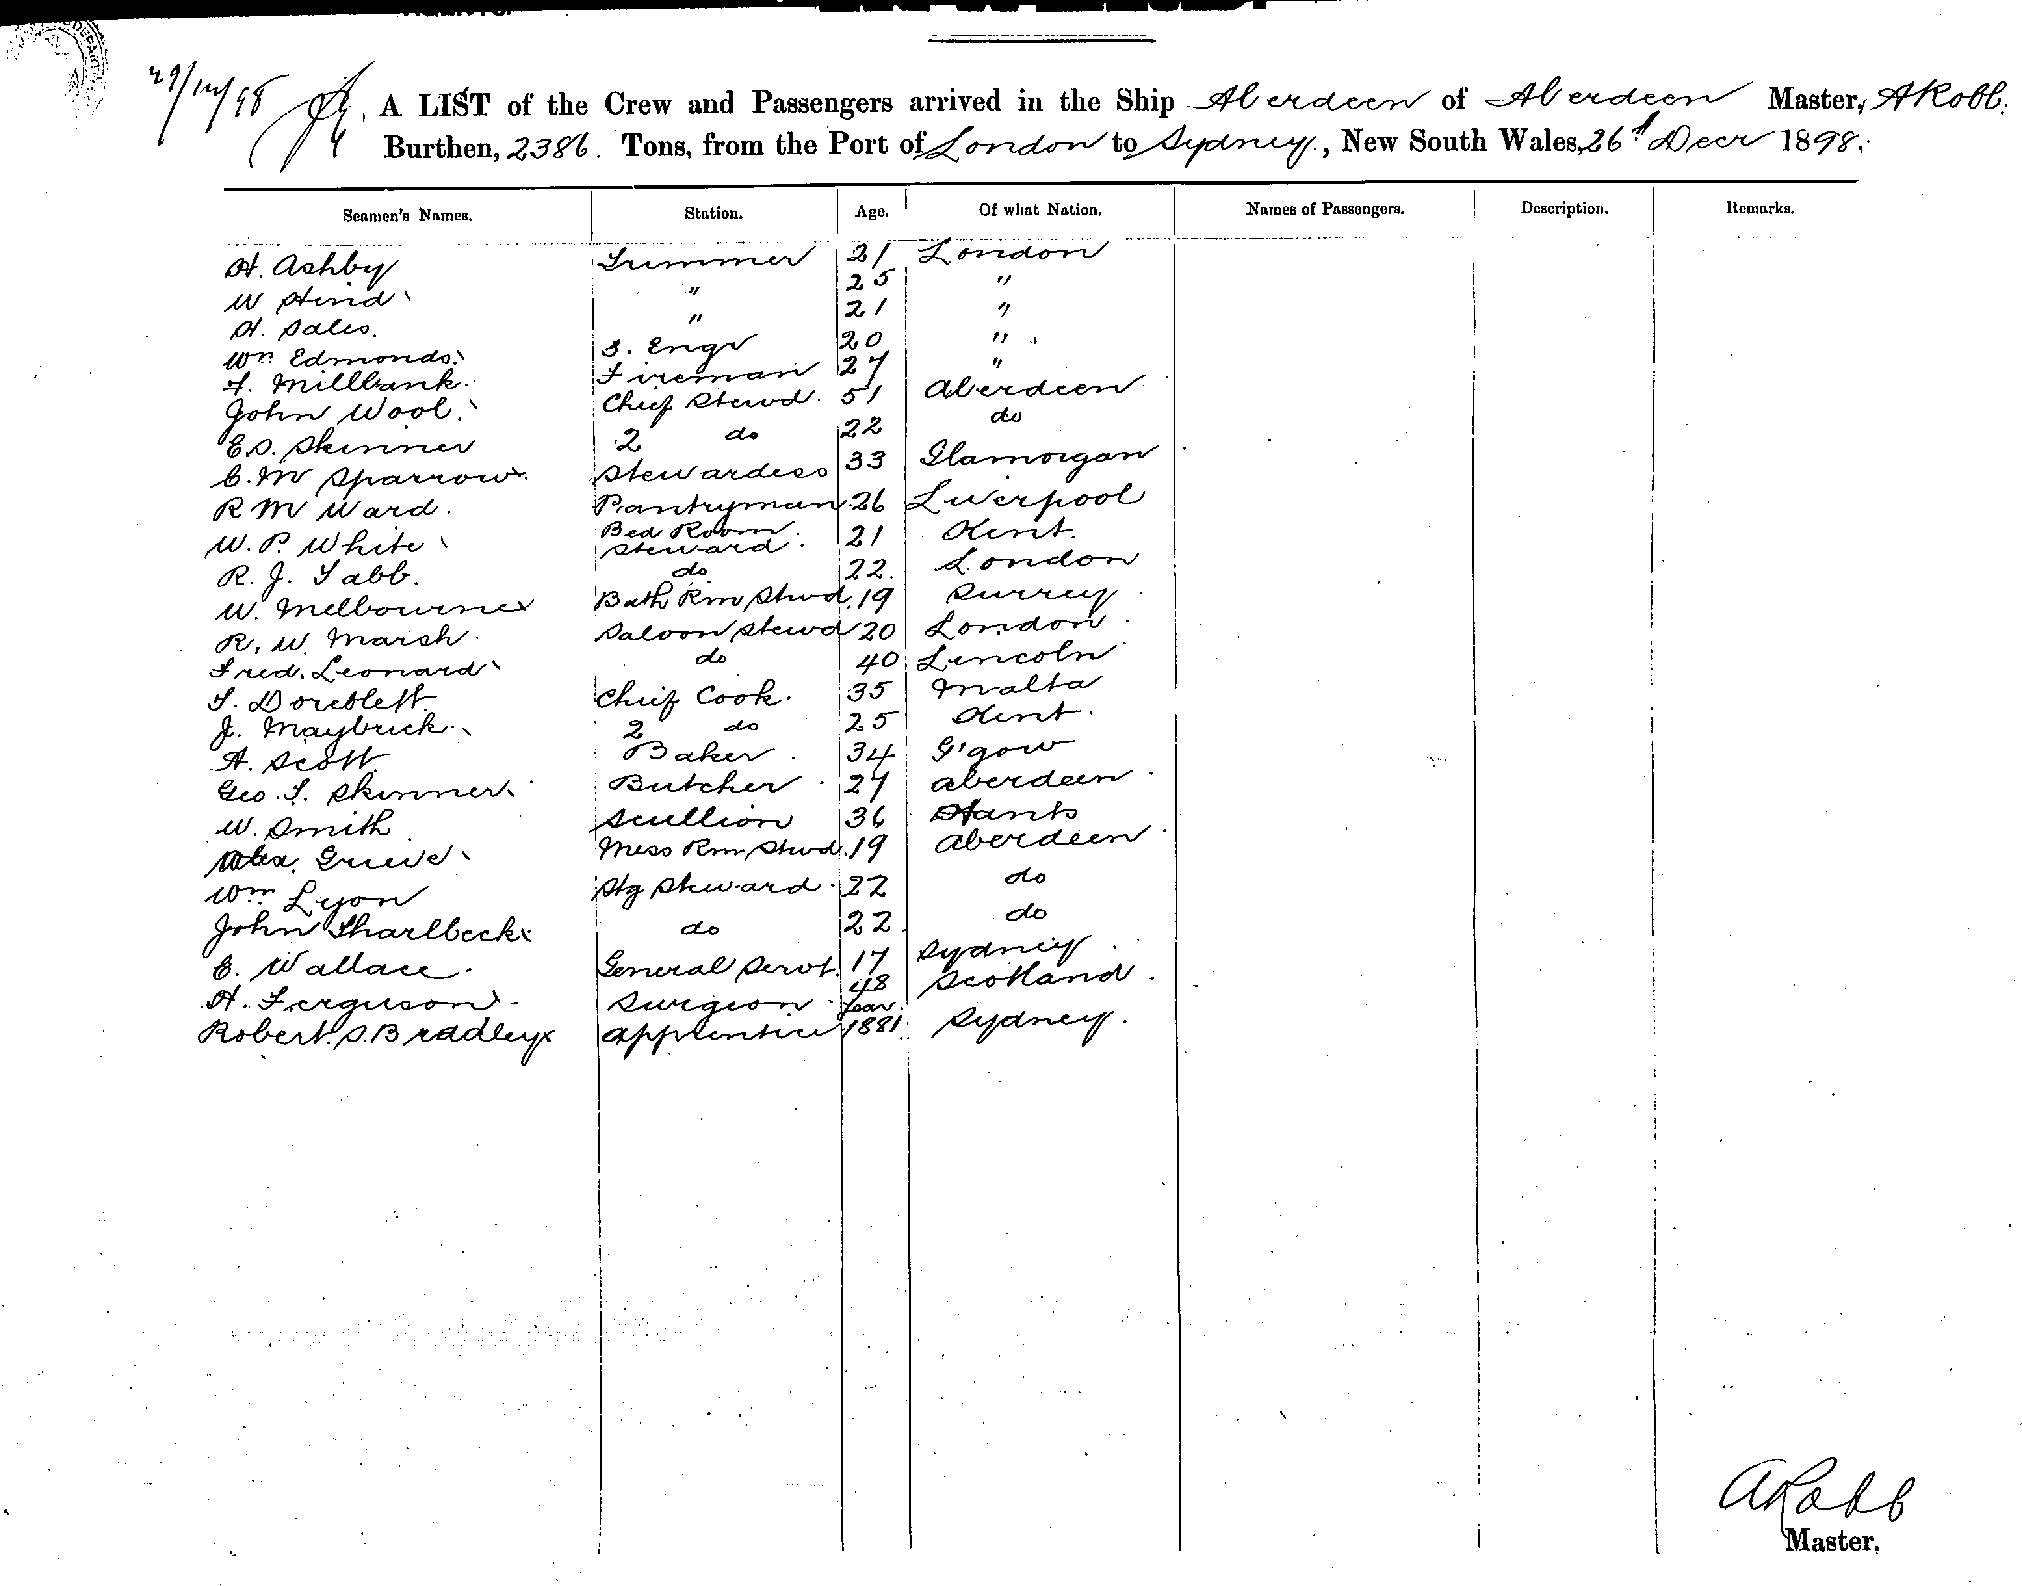 29/12/98
A LIST of the Crew and Passengers arrived in the Ship Aberdeen of Aberdeen Master, A Robb.
Burthen, 2386. Tons, from the Port of London to Sydney, New South Wales, 26th Decr 1898.
Seamen's Names. Station. Age. Of what Nation. Names of Passengers. Description. Remarks.
H. Ashby Trimmer 21 London
W Hind " 25 "
H. Sales. " 21 "
Wm Edmonds. S. Engr 20 "
F. Millbank. Fireman 27 "
John Wool. Chief Stewd. 51 Aberdeen
E.S. Skinner 2 do 22 do
C. M Sparrow Stewardess 33 Glamorgan
R M Ward. Pantryman 26 Liverpool
W. P. White Bed Room Steward. 21 Kent.
R. J. Tabb. do 22. London
W. Melbourne Bath Rm Stwd. 19 Surrey
R. W. Marsh Saloon Stewd 20 London
Fred. Leonard do 40 Lincoln
T. Chief Cook. 35 Malta
J. Maybrick. 2 do 25 Kent.
A. Scott Baker 34 G'gow
Geo. T. Skinner Butcher 27 Aberdeen
W. Smith Scullion 36 Hants
Alex. Grieve Mess Rm Stwd. 19 Aberdeen
Wm Lyon Stg Steward. 22 do
John Tharlbeck do 22 do
E. Wallace. General Servt. 17 Sydney
A. Ferguson Surgeon 48 Scotland
Robert S. Bradley Apprentice 1881 Sydney.
A Robb
Master.